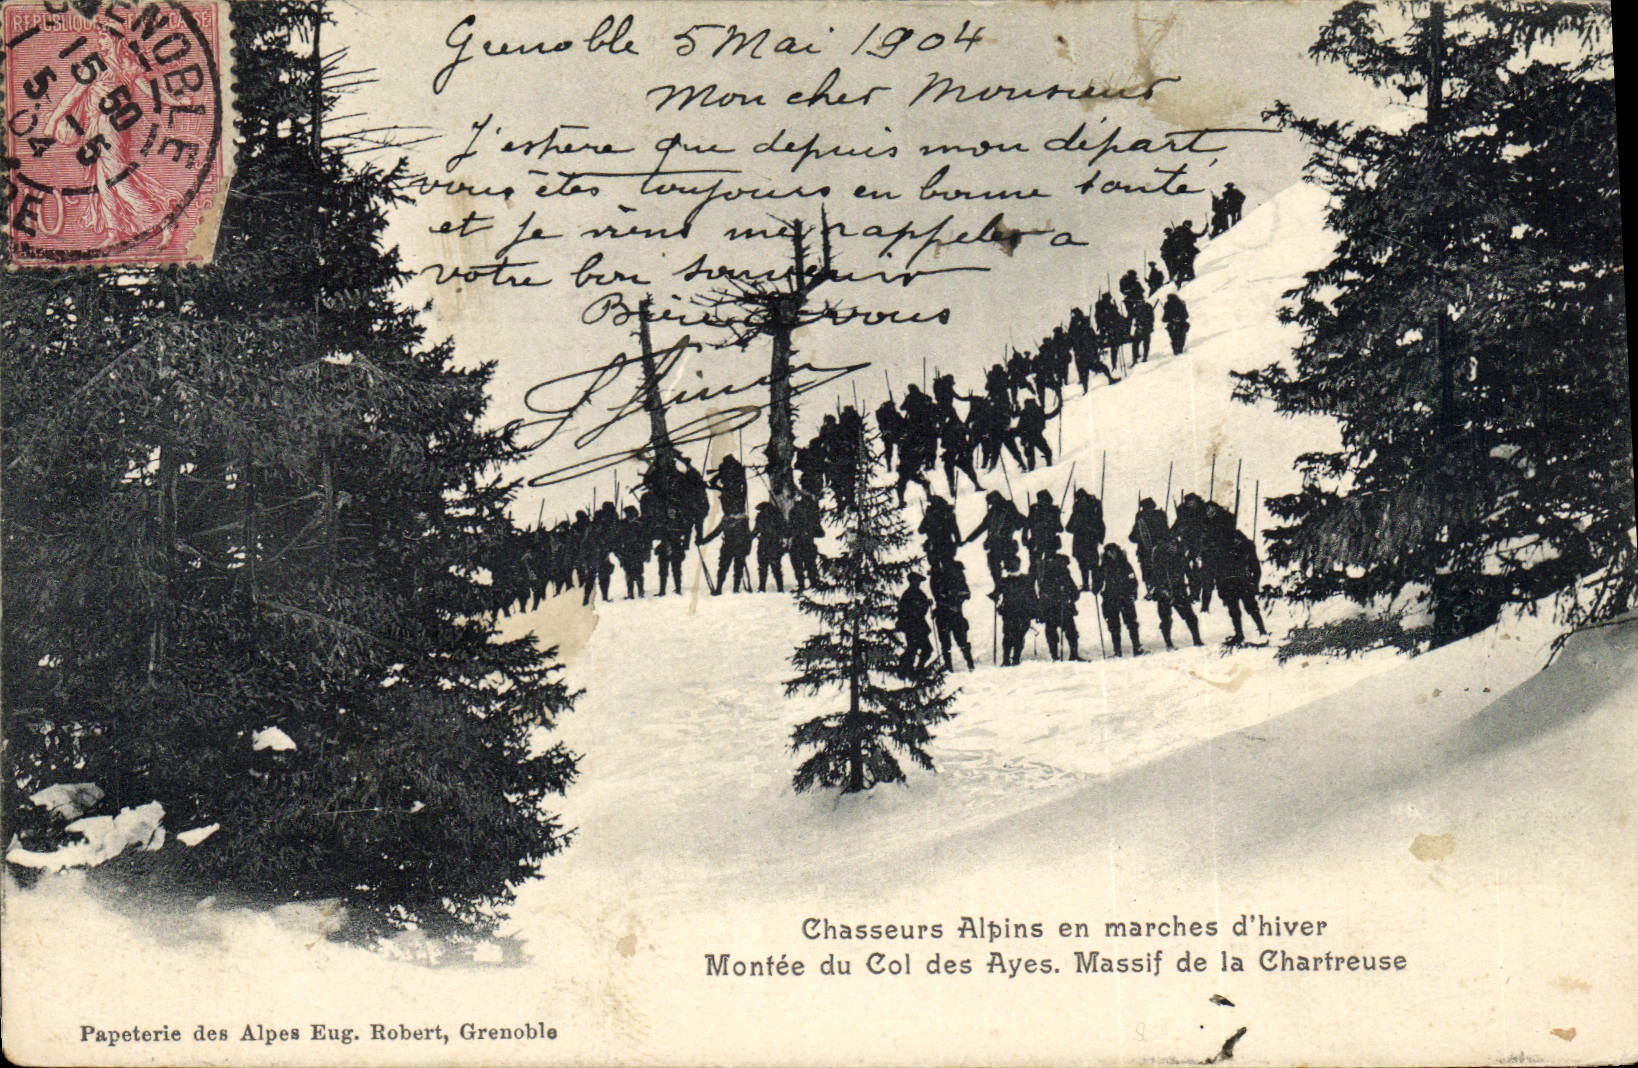 RÉPUBLIQUE FRANÇAISE
GRENOBLE
15 50
5 -5
04
Grenoble 5 Mai 1904
Mon cher Monsieur
J'espère que depuis mon départ,
vous êtes toujours en bonne santé
et je viens me rappeler a
votre bon souvenir
Bien à vous
Chasseurs Alpins en marches d'hiver
Montée du Col des Ayes. Massif de la Chartreuse
Papeterie des Alpes Eug. Robert, Grenoble